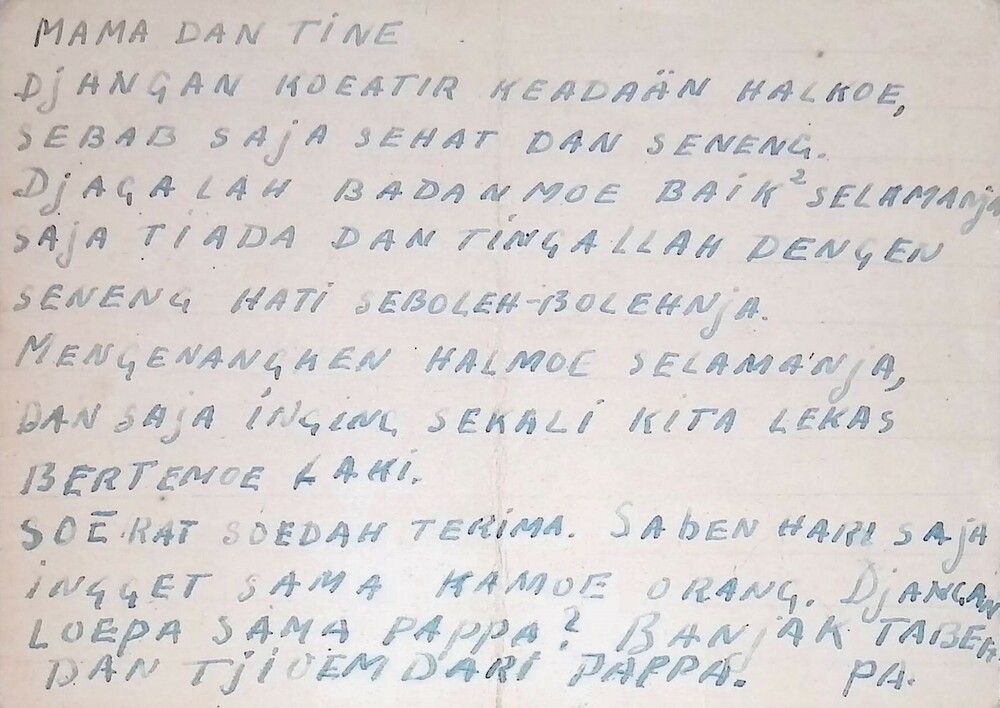 MAMA DAN TINE
DjANGAN KOEATIR KEADAÄN HALKOE,
SEBAB SAjA SEHAT DAN SENENG.
DjAGALAH BADANMOE BAIK² SELAMANjA
SAjA TIADA DAN TINGALLAH DENGEN
SENENG HATI SEBOLEH-BOLEHNjA.
MENGENANGKEN HALMOE SELAMANjA,
DAN SAjA INGING SEKALI KITA LEKAS
BERTEMOE LAKI.
SOERAT SOEDAH TERIMA. SAbEN HARI SAjA
INGGET SAMA KAMOE ORANG. DjANGAN
LOEPA SAMA PAPPA? BANjAK TABEH
DAN TjIOEM DARI PAPPA. PA.